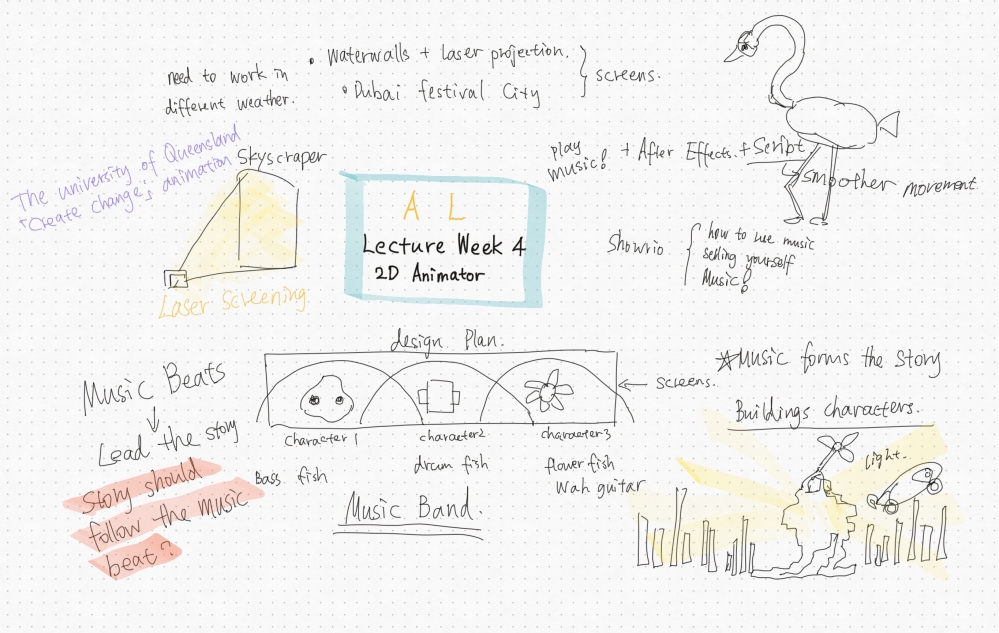 need to work in
different weather.
• Waterwalls + laser projection.
• Dubai festival City
screens.
The university of Queensland
「Create change」 animation
Skyscraper
Laser Screening
A L
Lecture Week 4
2D Animator
Play
music!
+ After Effects. + Script
smoother movement.
Showrio
how to use music
selling yourself
Music!
design Plan.
Music Beats
↓
Lead the story
Story should
follow the music
beat?
← screens.
character 1
character2
character3
Bass fish
drum fish
flower fish
Wah guitar
Music Band.
☆Music forms the story
Buildings characters.
Light.